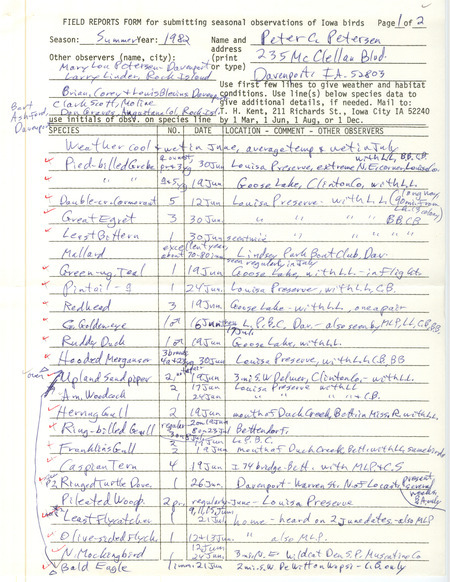 FIELD REPORTS FORM for submitting seasonal observations of Iowa birds Page 1 of 2
Season: Summer Year: 1982 Name and address (print or type) Peter C. Petersen
235 McClellan Blvd.
Davenport, IA. 52803
Other observers (name, city):
Mary Lou Petersen - Davenport
Larry Linder, Rock Island
Brian, Corey + Louis Blevins, Davenp
Clark Scott, Moline
Don Graves, Rock Isl.
Burt Davenport
Use first few lines to give weather and habitat
conditions. Use line(s) below species data to
give additional details, if needed. Mail to:
T. H. Kent, 211 Richards St., Iowa City IA 52240
use initials of obsv. on species line by 1 Mar, 1 Jun, 1 Aug, or 1 Dec.
SPECIES NO. DATE LOCATION - COMMENT - OTHER OBSERVERS
Weather cool + wet in June, average temp + wet in July
with LL, BB, CB
Pied-billed Grebe 30 Jun Louisa Preserve, extreme N.E. corner Louisa Co
" " 19 Jun Goose Lake, Clinton Co, with LL
Double-cr. Cormorant 5 12 Jun Louisa Preserve - with LL
Great Egret 3 30 Jun " " " BB, CB
Least Bittern 1 30 Jun " " " "
Mallard excellent year about 70-80 Lindsay Park Boat Club, Dav.
seen regularly in July
Green-wg. Teal 1 19 Jun Goose Lake, with LL - in flight
Pintail - 1 24 Jun Louisa Preserve, with LL, CB
Redhead 3 19 Jun Goose Lake - with LL, one a pair
Co. Goldeneye 1♂ 16 Jun 17 Jul L.P.B.C., Dav. - also seen by MLP, LL, CB, BB
Ruddy Duck 1♂ 19 Jun Goose Lake, with LL
Hooded Merganser 3 broods 30 Jun Louisa Preserve, with LL, CB, BB
Upland Sandpiper 2 19 Jun 3 mi. S.W Delmar, Clinton Co - with LL
Am. Woodcock 2 17 Jun Louisa Preserve with LL
1 24 Jun " " " + CB
Herring Gull 2 19 Jun mouth of Duck Creek, Bett. in Miss R. with LL
Ring-billed Gull regular 20 on 19 Jun 80 on 23 Jul Bettendorf,
2 19 Jun L.P.B.C.
Franklins Gull 2 19 Jun mouth of Duck Creek, Bett. with LL, same birds
Caspian Tern 4 19 Jun I 74 bridge - Bett. with MLP + CS
Ringed Turtle Dove 1 26 Jun Davenport - Warren St. Not Local
Present several weeks
Pileated Woodp. 2 pr. regularly - June - Louisa Preserve
Least Flycatcher 1 9, 11, 15 Jun 21 Jul home - heard on 2 June dates - also MLP
Olive-sided Flyc. 1 12+13 Jun " also MLP
N. Mockingbird 1 12 Jun 24 Jun 3 mi. N.E Wildcat Den S.P. Muscatine Co
Bald Eagle 1 imm 21 Jun 2 mi. S.W. Dewitt on Wapsi - CB only
over